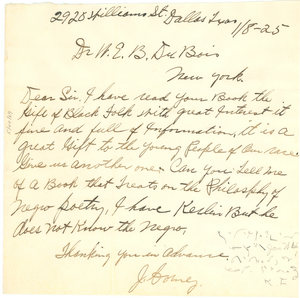 2920 Williams St. Dallas Texas
1/8-25
Dr W. E. B. Du Bois
New York.
Dear Sir. I have read your Book the
Gift of Black Folk with great Interest it
fine and full of Information, it is a
great Gift to the young People of Our race
Give us another one. Can you tell me
of A Book that Treats on the Philosophy of
Negro poetry, I have Kerlin But he
does not Know the Negro,
Thanking you in Advance